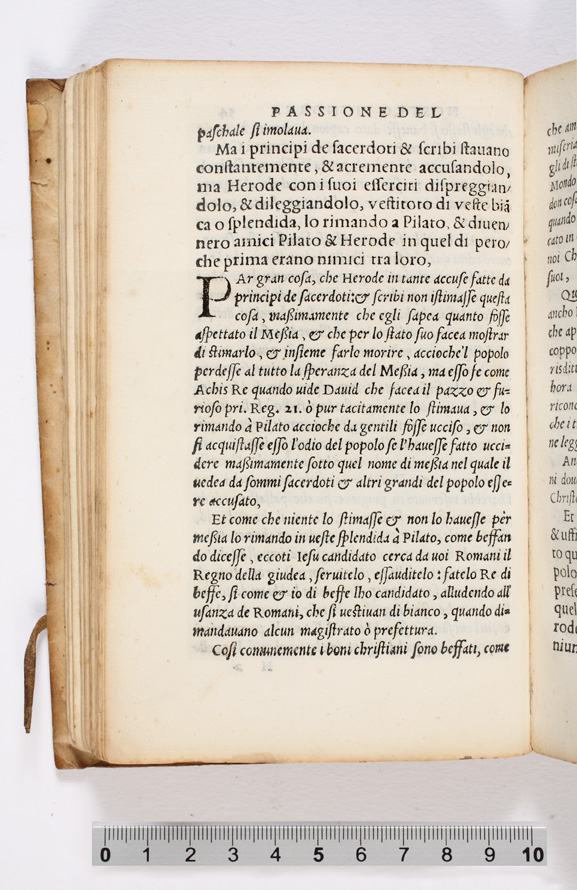 PASSIONE DEL
paschale stimolaua.
Ma i principi de sacerdoti & scribi stauano
constantemente, & acremente accusandolo,
ma Herode con i suoi esserciti dispreggian/
dolo, & dileggiandolo, vestitoto di veste biã
ca o splendida, lo rimando a Pilato, & diuen/
nero amici Pilato & Herode in quel di pero/
che prima erano nimici tra loro,
PAr gran cosa, che Herode in tante accuse fatte da
principi de sacerdoti:& scribi non istimasse questa
cosa, maßimamente che egli sapea quanto fosse
aspettato il Meßia, & che per lo stato suo facea mostrar
di stimarlo, & insieme farlo morire, accioche'l popolo
perdesse al tutto la speranza del Meßia, ma esso fe come
Achis Re quando uide Dauid che facea il pazzo & fu-
rioso pri. Reg. 21. ò pur tacitamente lo stimaua, & lo
rimando à Pilato accioche da gentili fosse ucciso, & non
si acquistasse esso l'odio del popolo se l'hauesse fatto ucci=
dere maßimamente sotto quel nome di meßia nel quale il
uedea da sommi sacerdoti & altri grandi del popolo esse=
re accusato,
Et come che niente lo stimasse & non lo hauesse per
meßia lo rimando in ueste splendida à Pilato, come beffan
do dicesse, eccoti Iesu candidato cerca da uoi Romani il
Regno della giudea, seruitelo, essauditelo: fatelo Re di
beffe, si come & io di beffe lho candidato, alludendo all'
usanza de Romani, che si uestiuan di bianco, quando di=
mandauano alcun magistrato ò prefettura.
Cosi comunemente i boni christiani sono beffati, come
che am
miseria
Mondo
don cosa
quando
cato in
noi Ch
suoi,
ancho
che ap
coppo
risditt
hora
ricono
che i t
ne legg
An
ni dou
Christo
Et
& uffi
to qu
polo
prese
quel
rode
niun
0 1 2 3 4 5 6 7 8 9 10